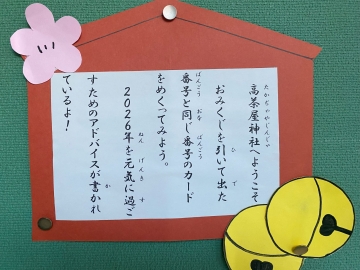 高茶屋神社へようこそ
おみくじを引いて出た
番号と同じ番号のカード
をめくってみよう。
2026年を元気に過ご
すためのアドバイスが書かれ
ているよ！